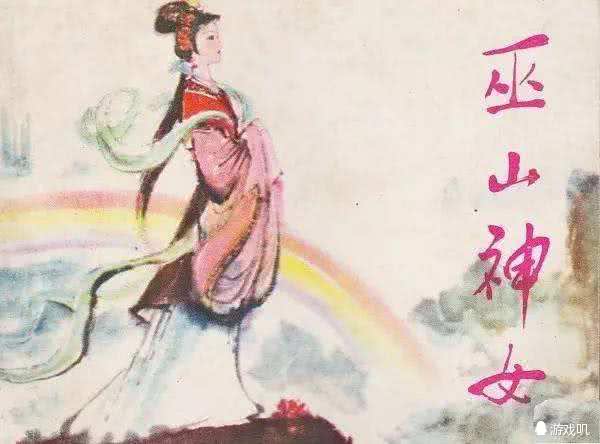 巫山神女
游戏叽